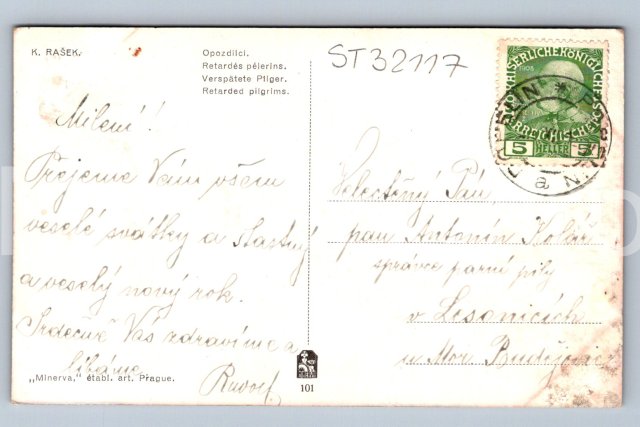 K. RAŠEK.
Opozdilci.
Retardés pélerins.
Verspätete Pilger.
Retarded pilgrims.
ST32117
Milení!
Přejeme Vám všem
veselé svátky a šťastný
a veselý nový rok.
Srdečně Vás zdravíme a
líbáme
Rudolf.
„Minerva," établ. art. Prague.
101
KAISERLICHEKÖNIGLICHE
1908
ÖSTERREICHISCHE
5 HELLER 5
Velectěný Pán
pan Antonín Kolář
správce parní pily
v Lesonicích
u Mor. Budějovic